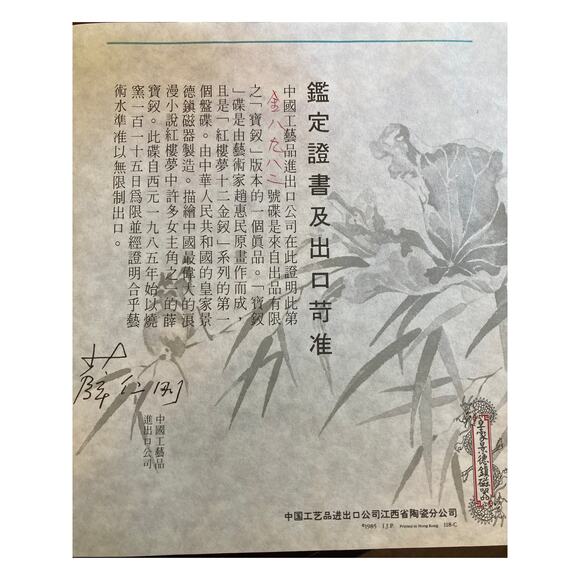 鑑定證書及出口苛准
中國工藝品進出口公司在此證明此第
金八九八二號碟是來自出品有限
之「寶釵」版本的一個眞品。「寶釵
」碟是由藝術家趙惠民原畫作而成，
且是「紅樓夢十二金釵」系列的第一
個盤碟。由中華人民共和國的皇家景
德鎮磁器製造。描繪中國最偉大的浪
漫小說紅樓夢中許多女主角之一的薛
寶釵。此碟自西元一九八五年始以燒
窰一百一十五日爲限並經證明合乎藝
術水準准以無限制出口。
中國工藝品
進出口公司
皇家景德鎮磁器
中国工艺品进出口公司江西省陶瓷分公司
©1985 I.J.P. Printed in Hong Kong 118-C